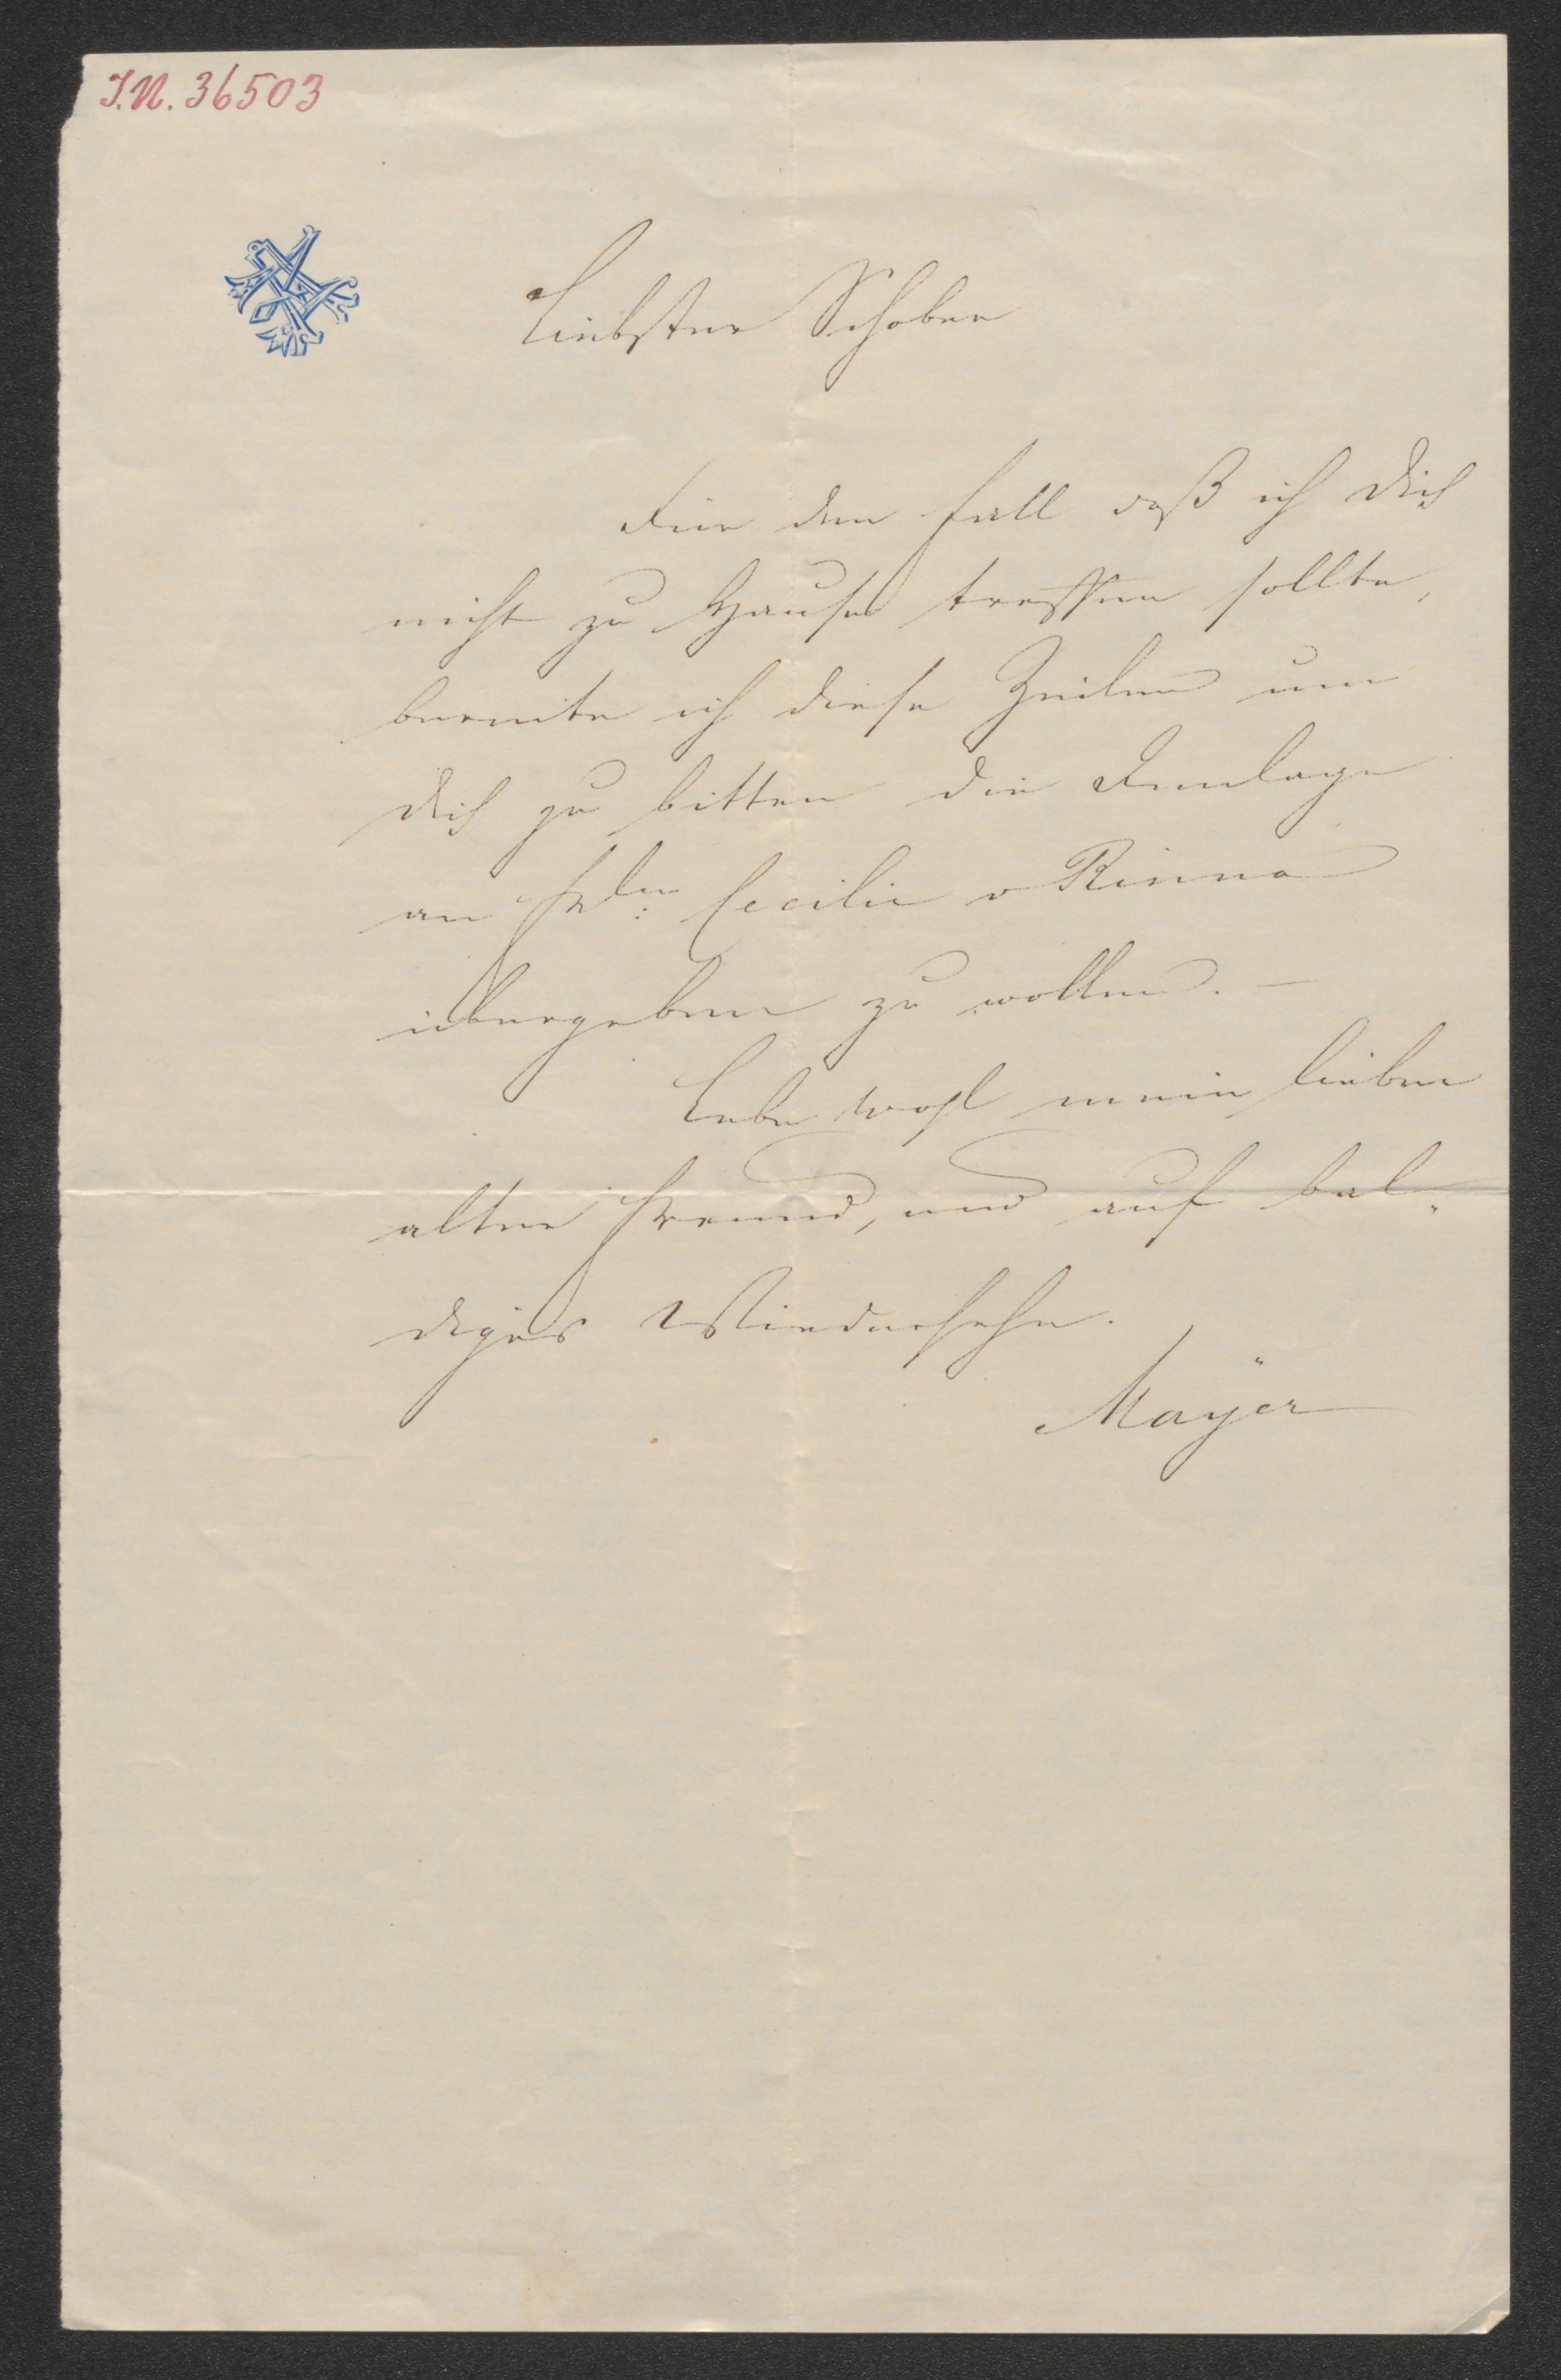 I.N. 36503
Liebster Schober
Für den Fall daß ich Dich
nicht zu Hause treffen sollte,
bereite ich diese Zeilen um
Dich zu bitten die Einlage
an Frln: Cecilie v Rinna
übergeben zu wollen. —
Lebe wohl mein lieber
alter Freund, und auf bal„
diges Wiedersehn.
Mayer